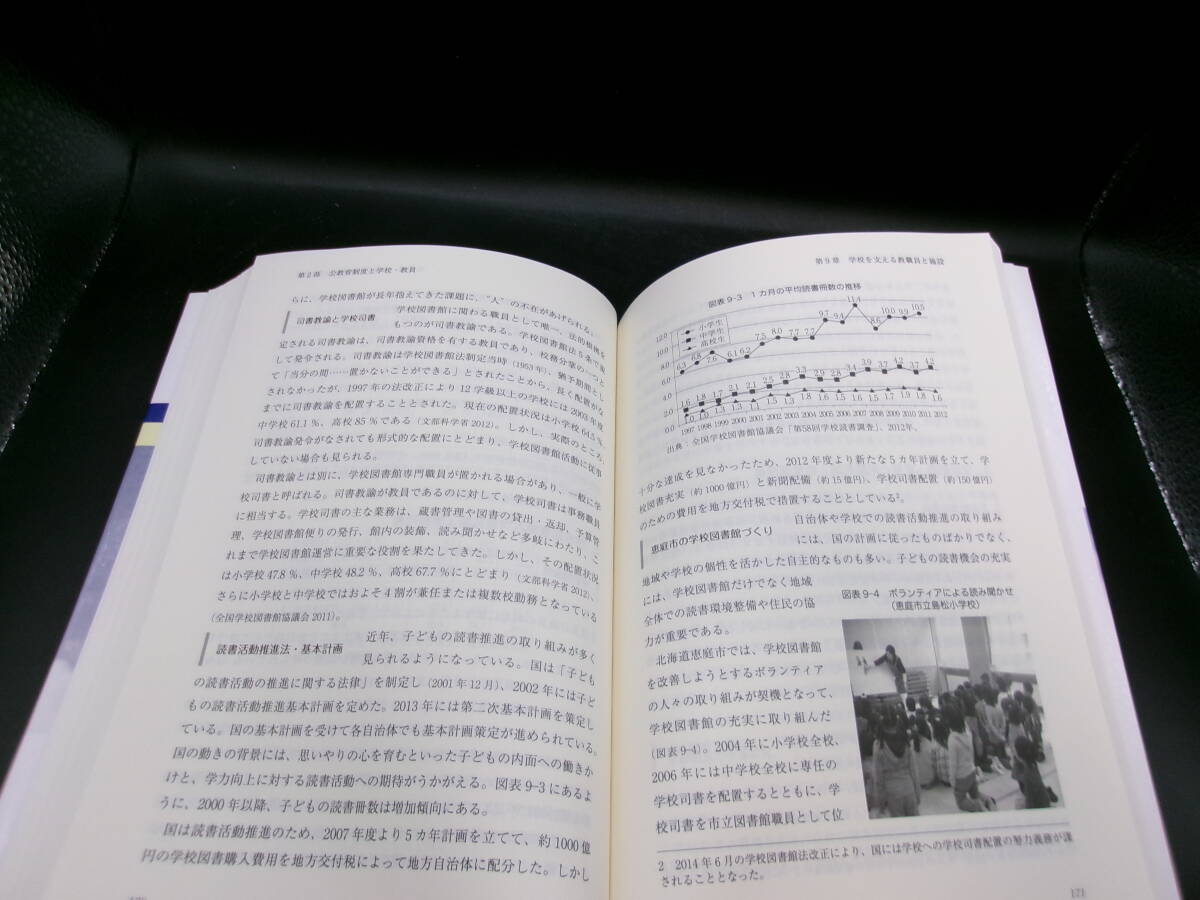 第2部 公教育制度と学校・教員
らに，学校図書館が長年抱えてきた課題に，“人”の不在があげられる。
司書教諭と学校司書
学校図書館に関わる職員として唯一，法的根拠を
もつのが司書教諭である。学校図書館法5条で規
定される司書教諭は，司書教諭資格を有する教員であり，校務分掌の一つと
して発令される。司書教諭は学校図書館法制定当時（1953年），猶予期間とし
て「当分の間……置かないことができる」とされたことから，長く配置がな
されなかったが，1997年の法改正により12学級以上の学校には2003年度
までに司書教諭を配置することとされた。現在の配置状況は小学校64.5％，
中学校61.1％，高校85％である（文部科学省2012）。しかし，実際のところ，
司書教諭発令がなされても形式的な配置にとどまり，学校図書館活動に従事
していない場合も見られる。
司書教諭とは別に，学校図書館専門職員が置かれる場合があり，一般に学
校司書と呼ばれる。司書教諭が教員であるのに対して，学校司書は事務職員
に相当する。学校司書の主な業務は，蔵書管理や図書の貸出・返却，予算管
理，学校図書館便りの発行，館内の装飾，読み聞かせなど多岐にわたり，こ
れまで学校図書館運営に重要な役割を果たしてきた。しかし，その配置状況
は小学校47.8％，中学校48.2％，高校67.7％にとどまり（文部科学省2012），
さらに小学校と中学校ではおよそ4割が兼任または複数校勤務となっている
（全国学校図書館協議会2011）。
読書活動推進法・基本計画
近年，子どもの読書推進の取り組みが多く
見られるようになっている。国は「子ども
の読書活動の推進に関する法律」を制定し（2001年12月），2002年には子ど
もの読書活動推進基本計画を定めた。2013年には第二次基本計画を策定し
ている。国の基本計画を受けて各自治体でも基本計画策定が進められている。
国の動きの背景には，思いやりの心を育むといった子どもの内面への働きか
けと，学力向上に対する読書活動への期待がうかがえる。図表9-3にあるよ
うに，2000年以降，子どもの読書冊数は増加傾向にある。
国は読書活動推進のため，2007年度より5カ年計画を立てて，約1000億
円の学校図書購入費用を地方交付税によって地方自治体に配分した。しかし
第9章 学校を支える教職員と施設
図表9-3 1カ月の平均読書冊数の推移
12.0
10.0
8.0
6.0
4.0
2.0
0.0
小学生
中学生
高校生
6.3 6.8 7.6 6.1 6.2 7.5 8.0 7.7 7.7 9.7 9.4 11.4 8.6 10.0 9.9 10.5
1.6 1.8 1.7 2.1 2.1 2.5 2.8 3.3 2.9 2.8 3.4 3.9 3.7 4.2 3.7 4.2
1.0 1.0 1.3 1.3 1.1 1.5 1.3 1.8 1.6 1.5 1.6 1.5 1.7 1.9 1.8 1.6
1997 1998 1999 2000 2001 2002 2003 2004 2005 2006 2007 2008 2009 2010 2011 2012
出典：全国学校図書館協議会「第58回学校読書調査」，2012年。
十分な達成を見なかったため，2012年度より新たな5カ年計画を立て，学
校図書充実（約1000億円）と新聞配備（約15億円），学校司書配置（約150億円）
のための費用を地方交付税で措置することとしている²。
恵庭市の学校図書館づくり
自治体や学校での読書活動推進の取り組み
には，国の計画に従ったものばかりでなく，
地域や学校の個性を活かした自主的なものも多い。子どもの読書機会の充実
には，学校図書館だけでなく地域
全体での読書環境整備や住民の協
力が重要である。
北海道恵庭市では，学校図書館
を改善しようとするボランティア
の人々の取り組みが契機となって，
学校図書館の充実に取り組んだ
（図表9-4）。2004年に小学校全校，
2006年には中学校全校に専任の
学校司書を配置するとともに，学
校司書を市立図書館職員として位
図表9-4 ボランティアによる読み聞かせ
（恵庭市立島松小学校）
2 2014年6月の学校図書館法改正により，国には学校への学校司書配置の努力義務が課
されることとなった。
171